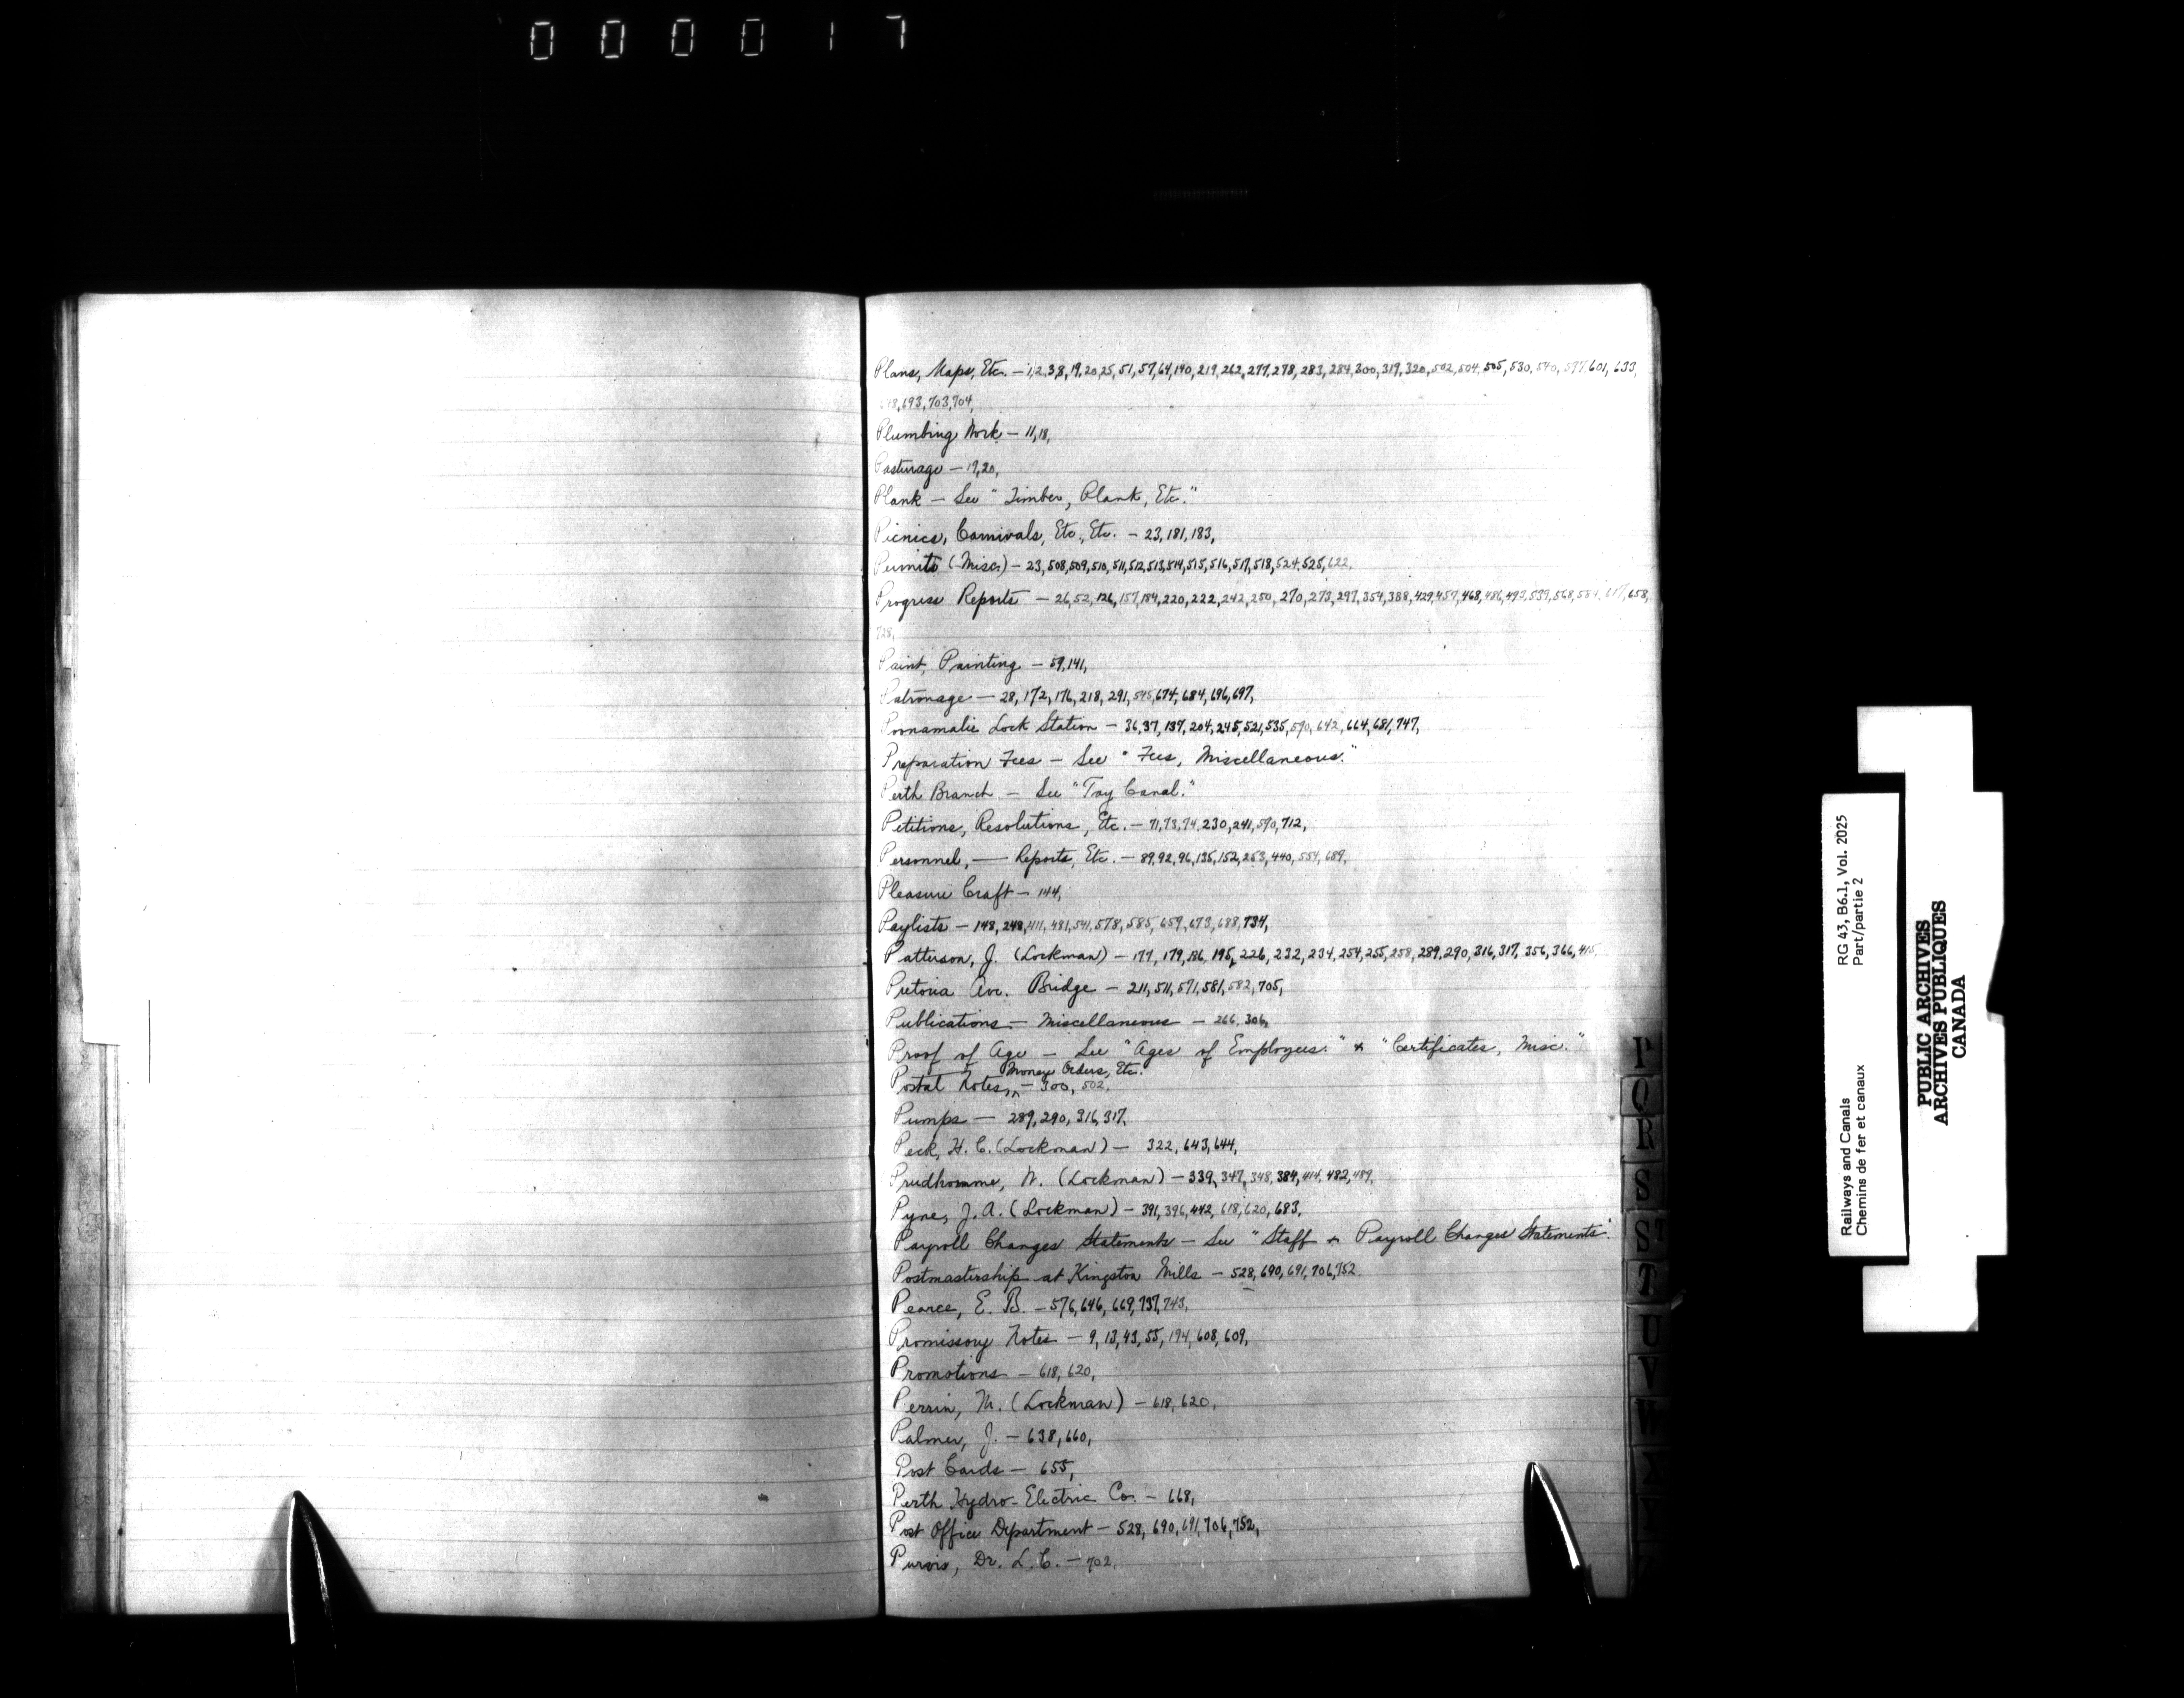 000017
Plans, Maps, Etc. — 1,2,3,8,19,20,25,51,57,64,140,219,262,277,278,283,284,300,319,320,502,504,505,530,540,597,601,633,
693,703,704,
Plumbing Work — 11,18,
Pasturage — 19,20,
Plank — See "Timber, Plank, Etc."
Picnics, Carnivals, Etc., Etc. — 23,181,183,
Permits (Misc.) — 23,508,509,510,511,512,513,514,515,516,517,518,524,525,622,
Progress Reports — 26,52,126,157,184,220,222,242,250,270,273,297,354,388,429,457,468,486,493,539,568,584,617,658,
728,
Paint, Painting — 59,141,
Patronage — 28,172,176,218,291,545,674,684,696,697,
Poonamalie Lock Station — 36,37,137,204,245,521,535,590,642,664,681,747,
Preparation Fees — See "Fees, Miscellaneous."
Perth Branch — See "Tay Canal."
Petitions, Resolutions, Etc. — 71,73,74,230,241,590,712,
Personnel, — Reports, Etc. — 89,92,96,135,152,253,440,554,689,
Pleasure Craft — 144,
Paylists — 148,248,411,481,541,578,585,659,673,688,734,
Patterson, J. (Lockman) — 177,179,186,195,226,232,234,254,255,258,289,290,316,317,356,366,415,
Pretoria Ave. Bridge — 211,511,571,581,582,705,
Publications — Miscellaneous — 266,306,
Proof of Age — See "Ages of Employees." & "Certificates, Misc."
Money Orders, Etc.
Postal Notes, — 300,502,
Pumps — 289,290,316,317,
Peck, H. C. (Lockman) — 322,643,644,
Prudhomme, W. (Lockman) — 339,347,348,384,414,482,489,
Pyne, J. A. (Lockman) — 391,396,442,618,620,683,
Payroll Changes Statements — See "Staff & Payroll Changes Statements".
Postmastership at Kingston Mills — 528,690,691,706,752
Pearce, E. B. — 576,646,669,737,743,
Promissory Notes — 9,13,43,55,194,608,609,
Promotions — 618,620,
Perrin, M. (Lockman) — 618,620,
Palmer, J. — 638,660,
Post Cards — 655,
Perth Hydro-Electric Co. — 668,
Post Office Department — 528,690,691,706,752,
Purvis, Dr. L. C. — 702,
P
Q
R
S
T
U
V
W
RG 43, B6.1, Vol. 2025
Part/partie 2
Railways and Canals
Chemins de fer et canaux
PUBLIC ARCHIVES
ARCHIVES PUBLIQUES
CANADA